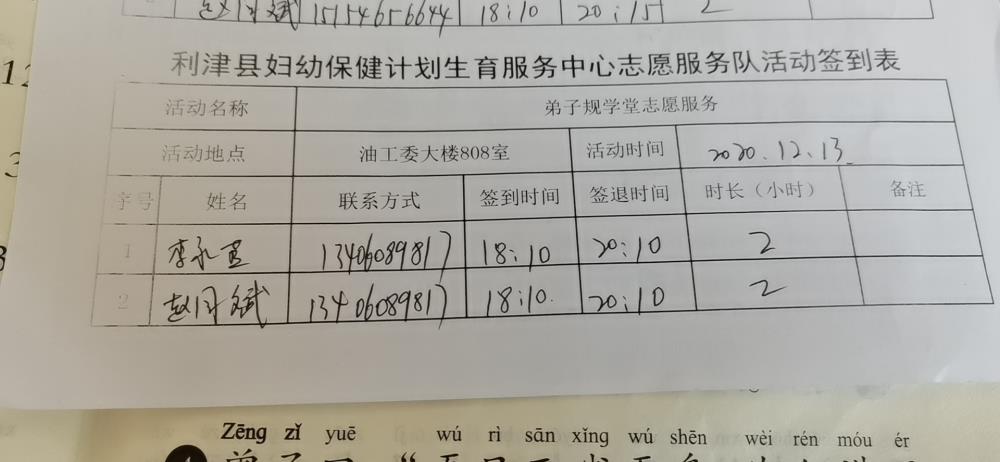 15154656644 18:10 20:15 2
利津县妇幼保健计划生育服务中心志愿服务队活动签到表
活动名称 弟子规学堂志愿服务
活动地点 油工委大楼808室 活动时间 2020.12.13
序号 姓名 联系方式 签到时间 签退时间 时长（小时） 备注
1 李 13406089817 18:10 20:10 2
2 赵 斌 13406089817 18:10 20:10 2
Zēng zǐ yuē wú rì sān xǐng wú shēn wèi rén móu ér